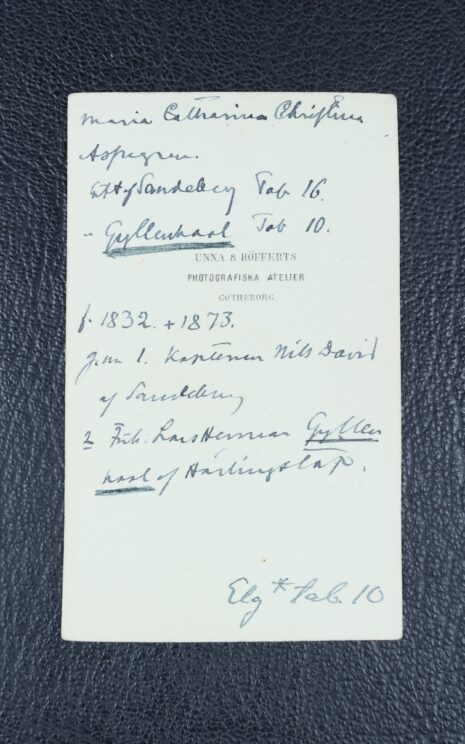 Maria Catharina Christina
Aspegren.
af Sandeberg Tab 16.
" Gyllenhaal Tab 10.
UNNA & HÖFFERTS
PHOTOGRAFISKA ATELIER
GÖTHEBORG
f. 1832. + 1873.
g.m 1. Kaptenen Nils David
af Sandeberg
2 Frih. Lars Herman Gyllen
haal af Härlingstorp.
Elg* Tab. 10